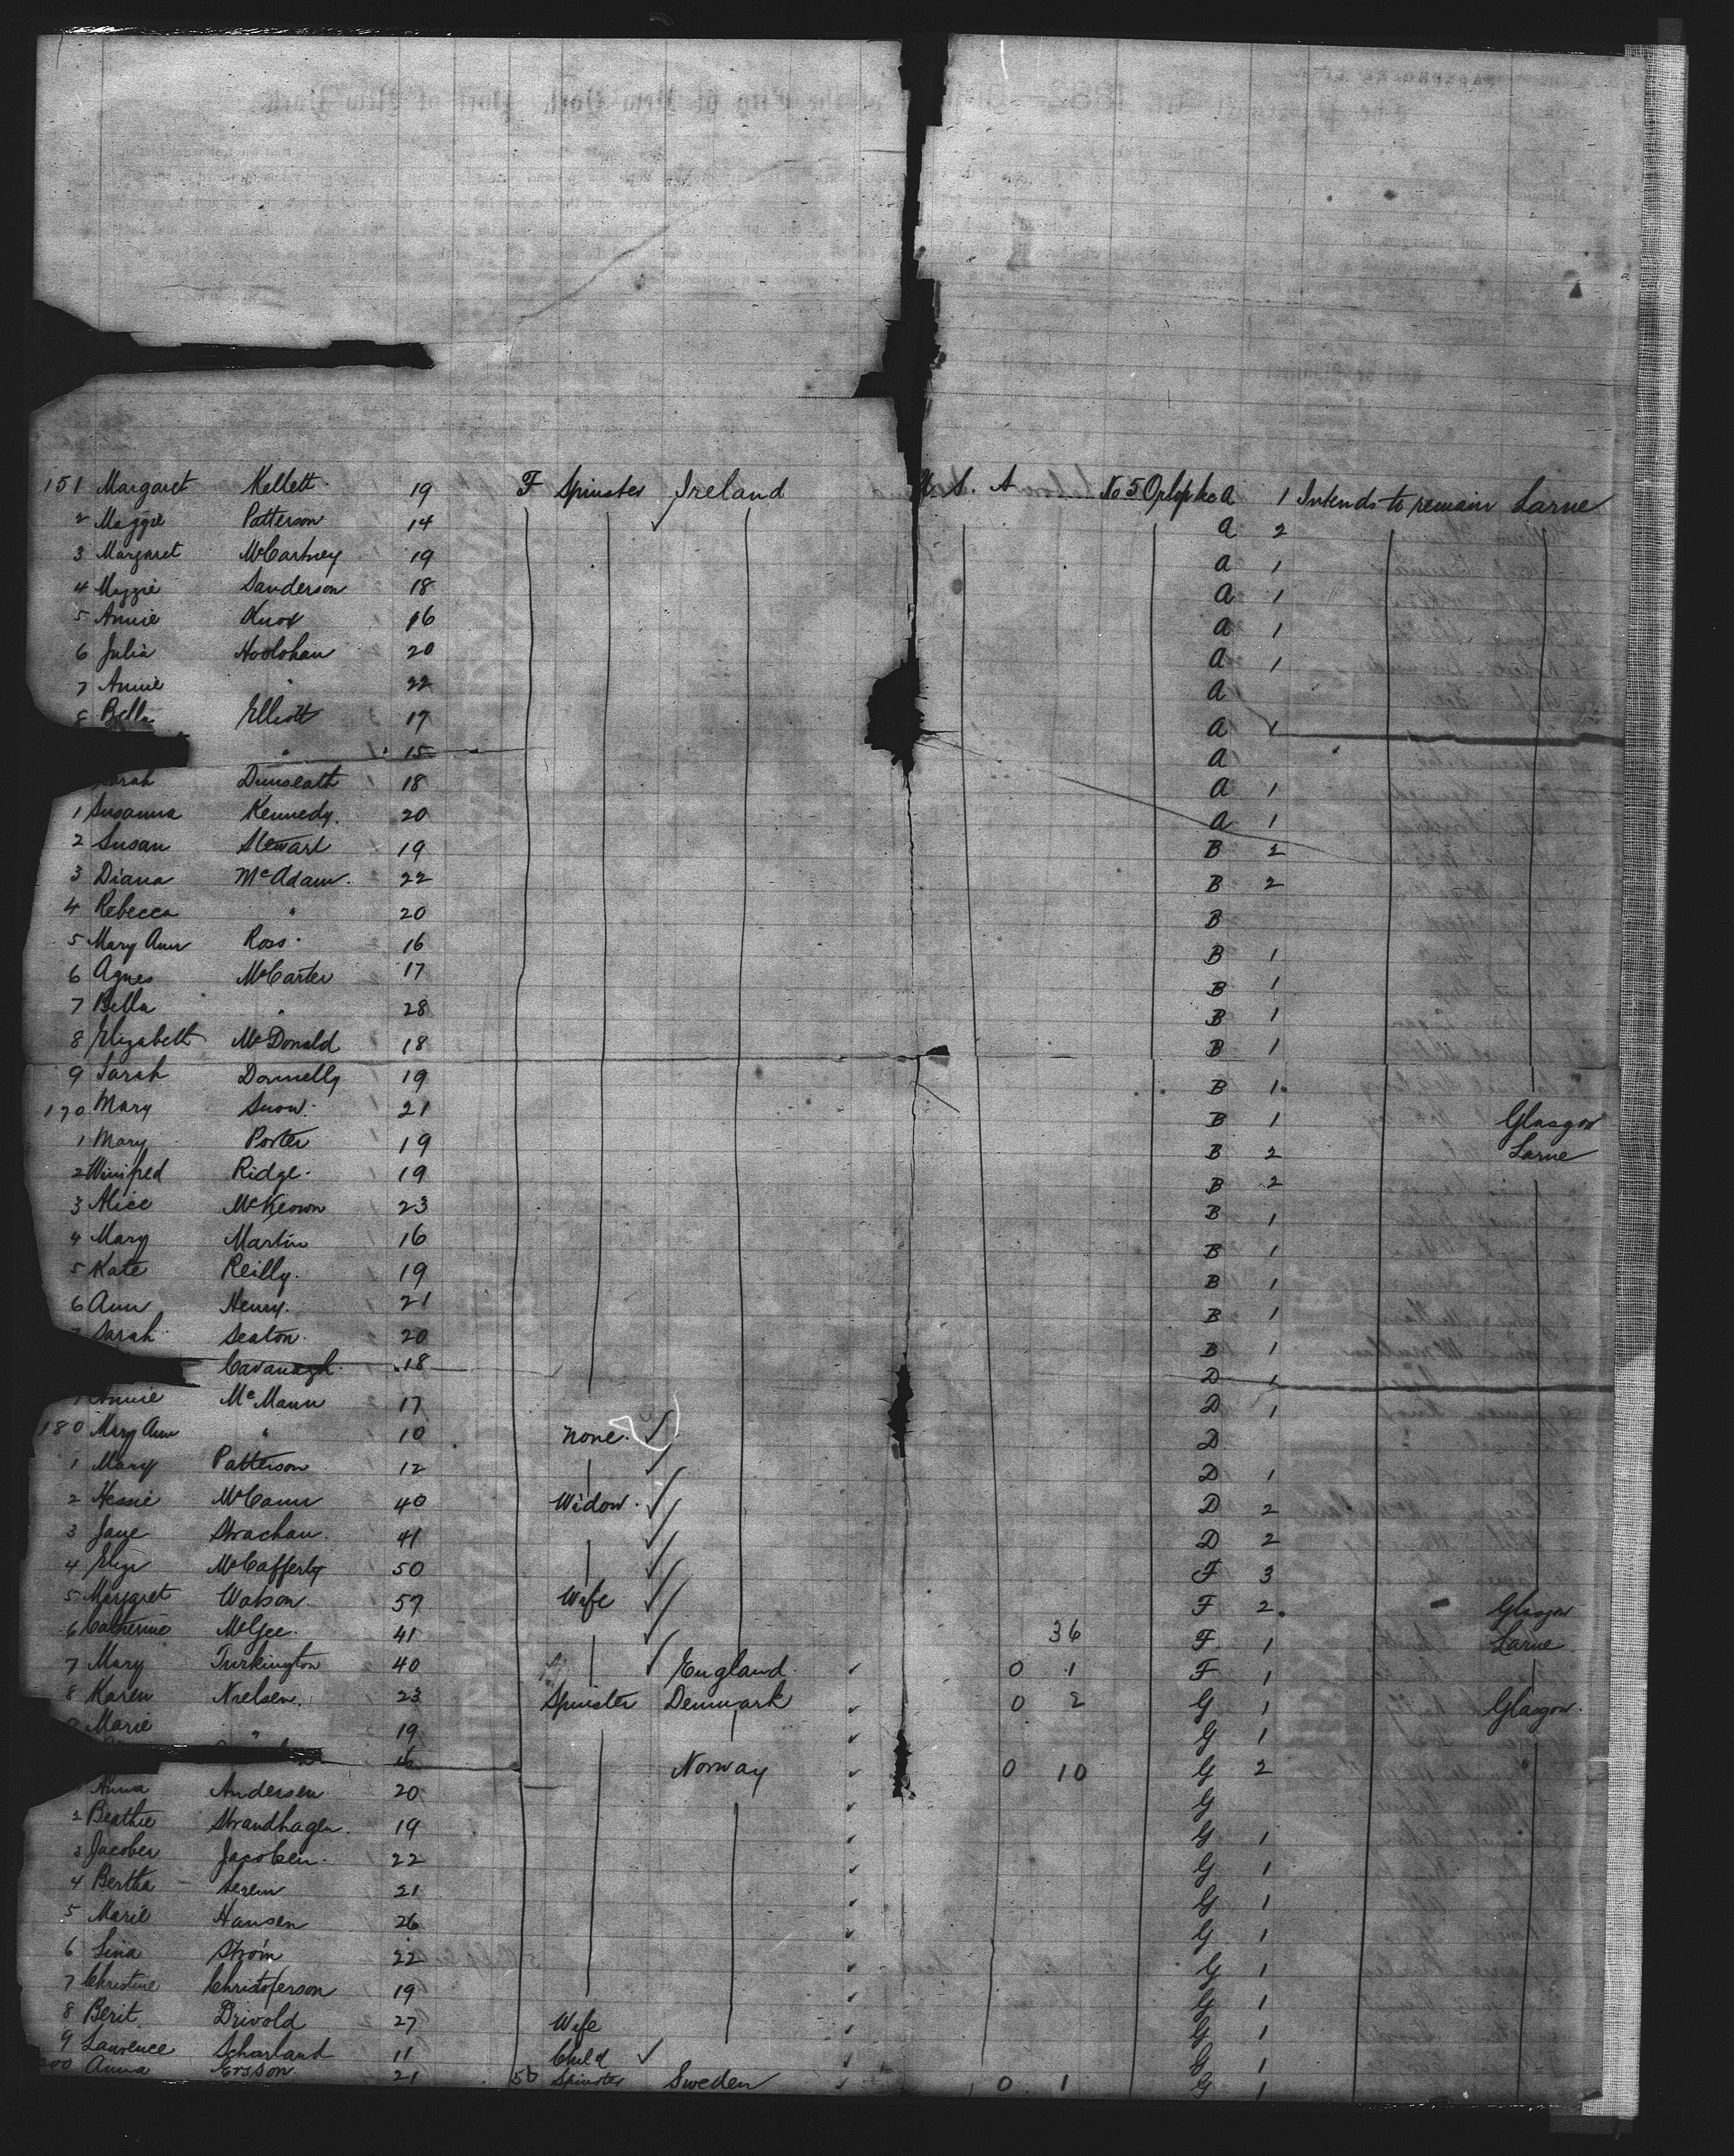 151 Margaret Kellett 19 F Spinster Ireland U. S. A No 5 Orlop A 1 Intends to remain Larne
2 Maggie Patterson 14 A 2
3 Margaret McCartney 19 A 1
4 Maggie Sanderson 18 A 1
5 Annie Knox 16 A 1
6 Julia Hoolohan 20 A 1
7 Annie " 22 A
8 Bella Elliott 17 A 1
" 15 A
Sarah Dunseath 18 A 1
1 Susanna Kennedy. 20 A 1
2 Susan Stewart 19 B 2
3 Diana McAdam. 22 B 2
4 Rebecca " 20 B
5 Mary Ann Ross. 16 B 1
6 Agnes McCarter 17 B 1
7 Bella " 28 B 1
8 Elizabeth McDonald 18 B 1
9 Sarah Donnelly 19 B 1
170 Mary Snow. 21 B 1 Glasgow
1 Mary Porter 19 B 2 Larne
2 Winifred Ridge. 19 B 2
3 Alice McKeown 23 B 1
4 Mary Martin 16 B 1
5 Kate Reilly. 19 B 1
6 Ann Henry. 21 B 1
7 Sarah Seaton. 20 B 1
Cavanagh. 18 D 1
Annie McMann 17 D 1
180 Mary Ann " 10 none. D
1 Mary Patterson 12 D 1
2 Hessie McCann 40 Widow. D 2
3 Jane Strachan. 41 D 2
4 Eliza McCafferty 50 F 3
5 Margaret Watson. 57 Wife F 2 Glasgow
6 Catherine McGee. 41 36 F 1 Larne
7 Mary Turkington 40 England. 0 1 F 1
8 Karen Nielsen. 23 Spinster Denmark 0 2 G 1 Glasgow.
9 Marie " 19 G 1
Norway 0 10 G 2 "
Anna Andersen 20 G
2 Beathie Strandhagen. 19 G 1
3 Jacobea Jacobsen. 22 G 1
4 Bertha 21 G 1
5 Marie Hansen 26 G 1
6 Lina Strom 22 G 1
7 Christine Christoferson 19 G 1
8 Berit Drivold 27 Wife G 1
9 Lawrence Scharland 11 Child G 1
200 Anna Ersson. 21 50 Spinster Sweden 0 1 G 1